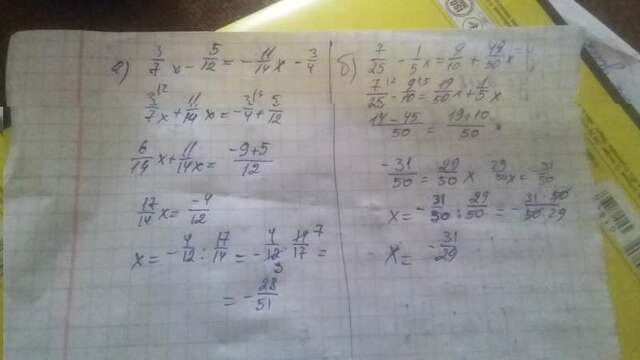 а) 3/7 x - 5/12 = - 11/14 x - 3/4
3/7 x + 11/14 x = - 3/4 + 5/12
6/14 x + 11/14 x = -9+5/12
17/14 x = -4/12
x = - 4/12 : 17/14 = - 4/12 · 14/17 =
= - 28/51
б) 7/25 - 1/5 x = 9/10 + 19/50 x
7/25 - 9/10 = 19/50 x + 1/5 x
14-45/50 = 19+10/50 x
-31/50 = 29/50 x 29/50 x = -31/50
x = - 31/50 : 29/50 = - 31·50/50·29
x = - 31/29